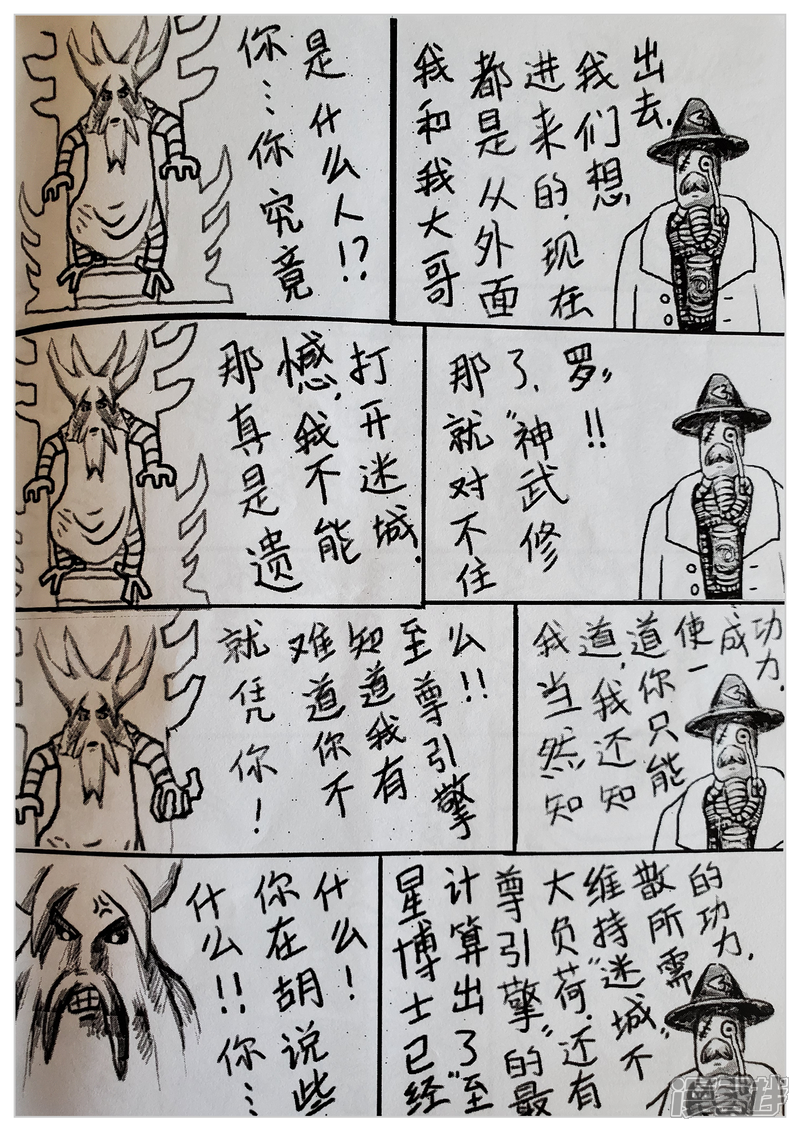 你…你究竟
是什么人!?
我和我大哥
都是从外面
进来的,现在
我们想
出去.
那真是遗
憾,我不能
打开迷城.
那就对不住
了,"神武修
罗"!!
就凭你!
难道你不
知道我有
至尊引擎
么!!
我当然知
道,我还知
道你只能
使一
成
功力.
什么!!你…
你在胡说些
什么!
星博士已经
计算出了"至
尊引擎"的最
大负荷.还有
维持"迷城"不
散所需
的功力.